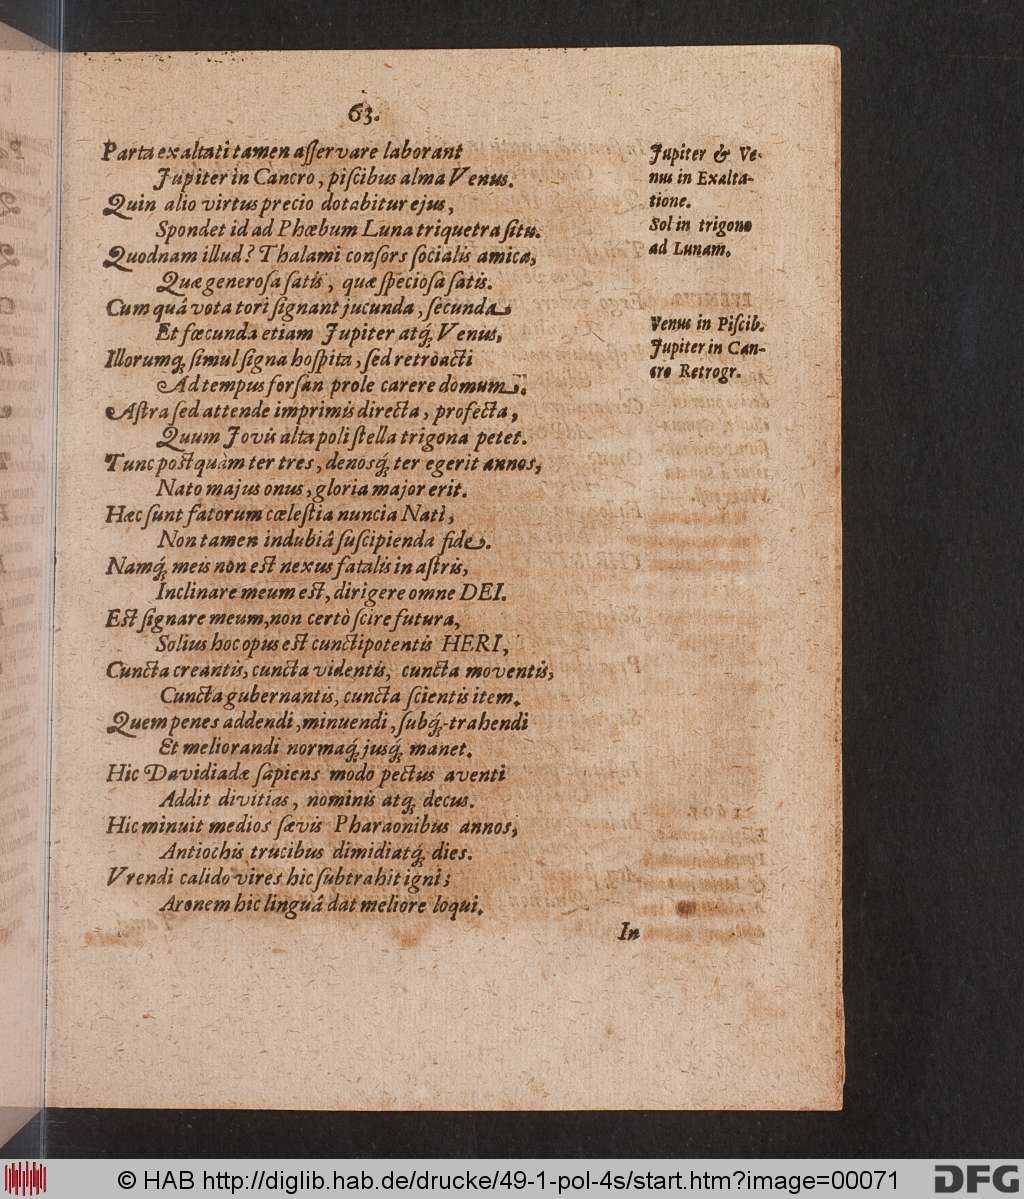 63.
Parta exaltati tamen aſſervare laborant
Jupiter in Cancro, piſcibus alma Venus.
Quin alio virtus precio dotabitur ejus,
Spondet id ad Phœbum Luna triquetra ſitu.
Quodnam illud? Thalami conſors ſocialis amica,
Quæ generoſa ſatis, quæ ſpecioſa ſatis.
Cum quâ vota tori ſignant jucunda, ſecunda
Et fœcunda etiam Jupiter atq́; Venus,
Illorumq; ſimul ſigna hoſpita, ſed retròacti
Ad tempus forſan prole carere domum.
Aſtra ſed attende imprimis directa, profecta,
Quum Jovis alta poli ſtella trigona petet.
Tunc poſtquàm ter tres, denosq́; ter egerit annos,
Nato majus onus, gloria major erit.
Hæc ſunt fatorum cœleſtia nuncia Natì,
Non tamen indubiâ ſuſcipienda fide.
Namq́; meis non eſt nexus fatalis in aſtris,
Inclinare meum eſt, dirigere omne DEI.
Eſt ſignare meum, non certò ſcire futura,
Solius hoc opus eſt cunctipotentis HERI,
Cuncta creantis, cuncta videntis, cuncta moventis,
Cuncta gubernantis, cuncta ſcientis item.
Quem penes addendi, minuendi, ſubq́;-trahendi
Et meliorandi normaq́; jusq́; manet.
Hic Davidiadæ ſapiens modo pectus aventi
Addit divitias, nominis atq; decus.
Hic minuit medios ſævis Pharaonibus annos,
Antiochis trucibus dimidiatq́; dies.
Vrendi calido vires hic ſubtrahit igni;
Aronem hic linguâ dat meliore loqui.
In
Jupiter & Ve-
nus in Exalta-
tione.
Sol in trigono
ad Lunam.
Venus in Piſcib.
Jupiter in Can-
cro Retrogr.
© HAB http://diglib.hab.de/drucke/49-1-pol-4s/start.htm?image=00071
DFG